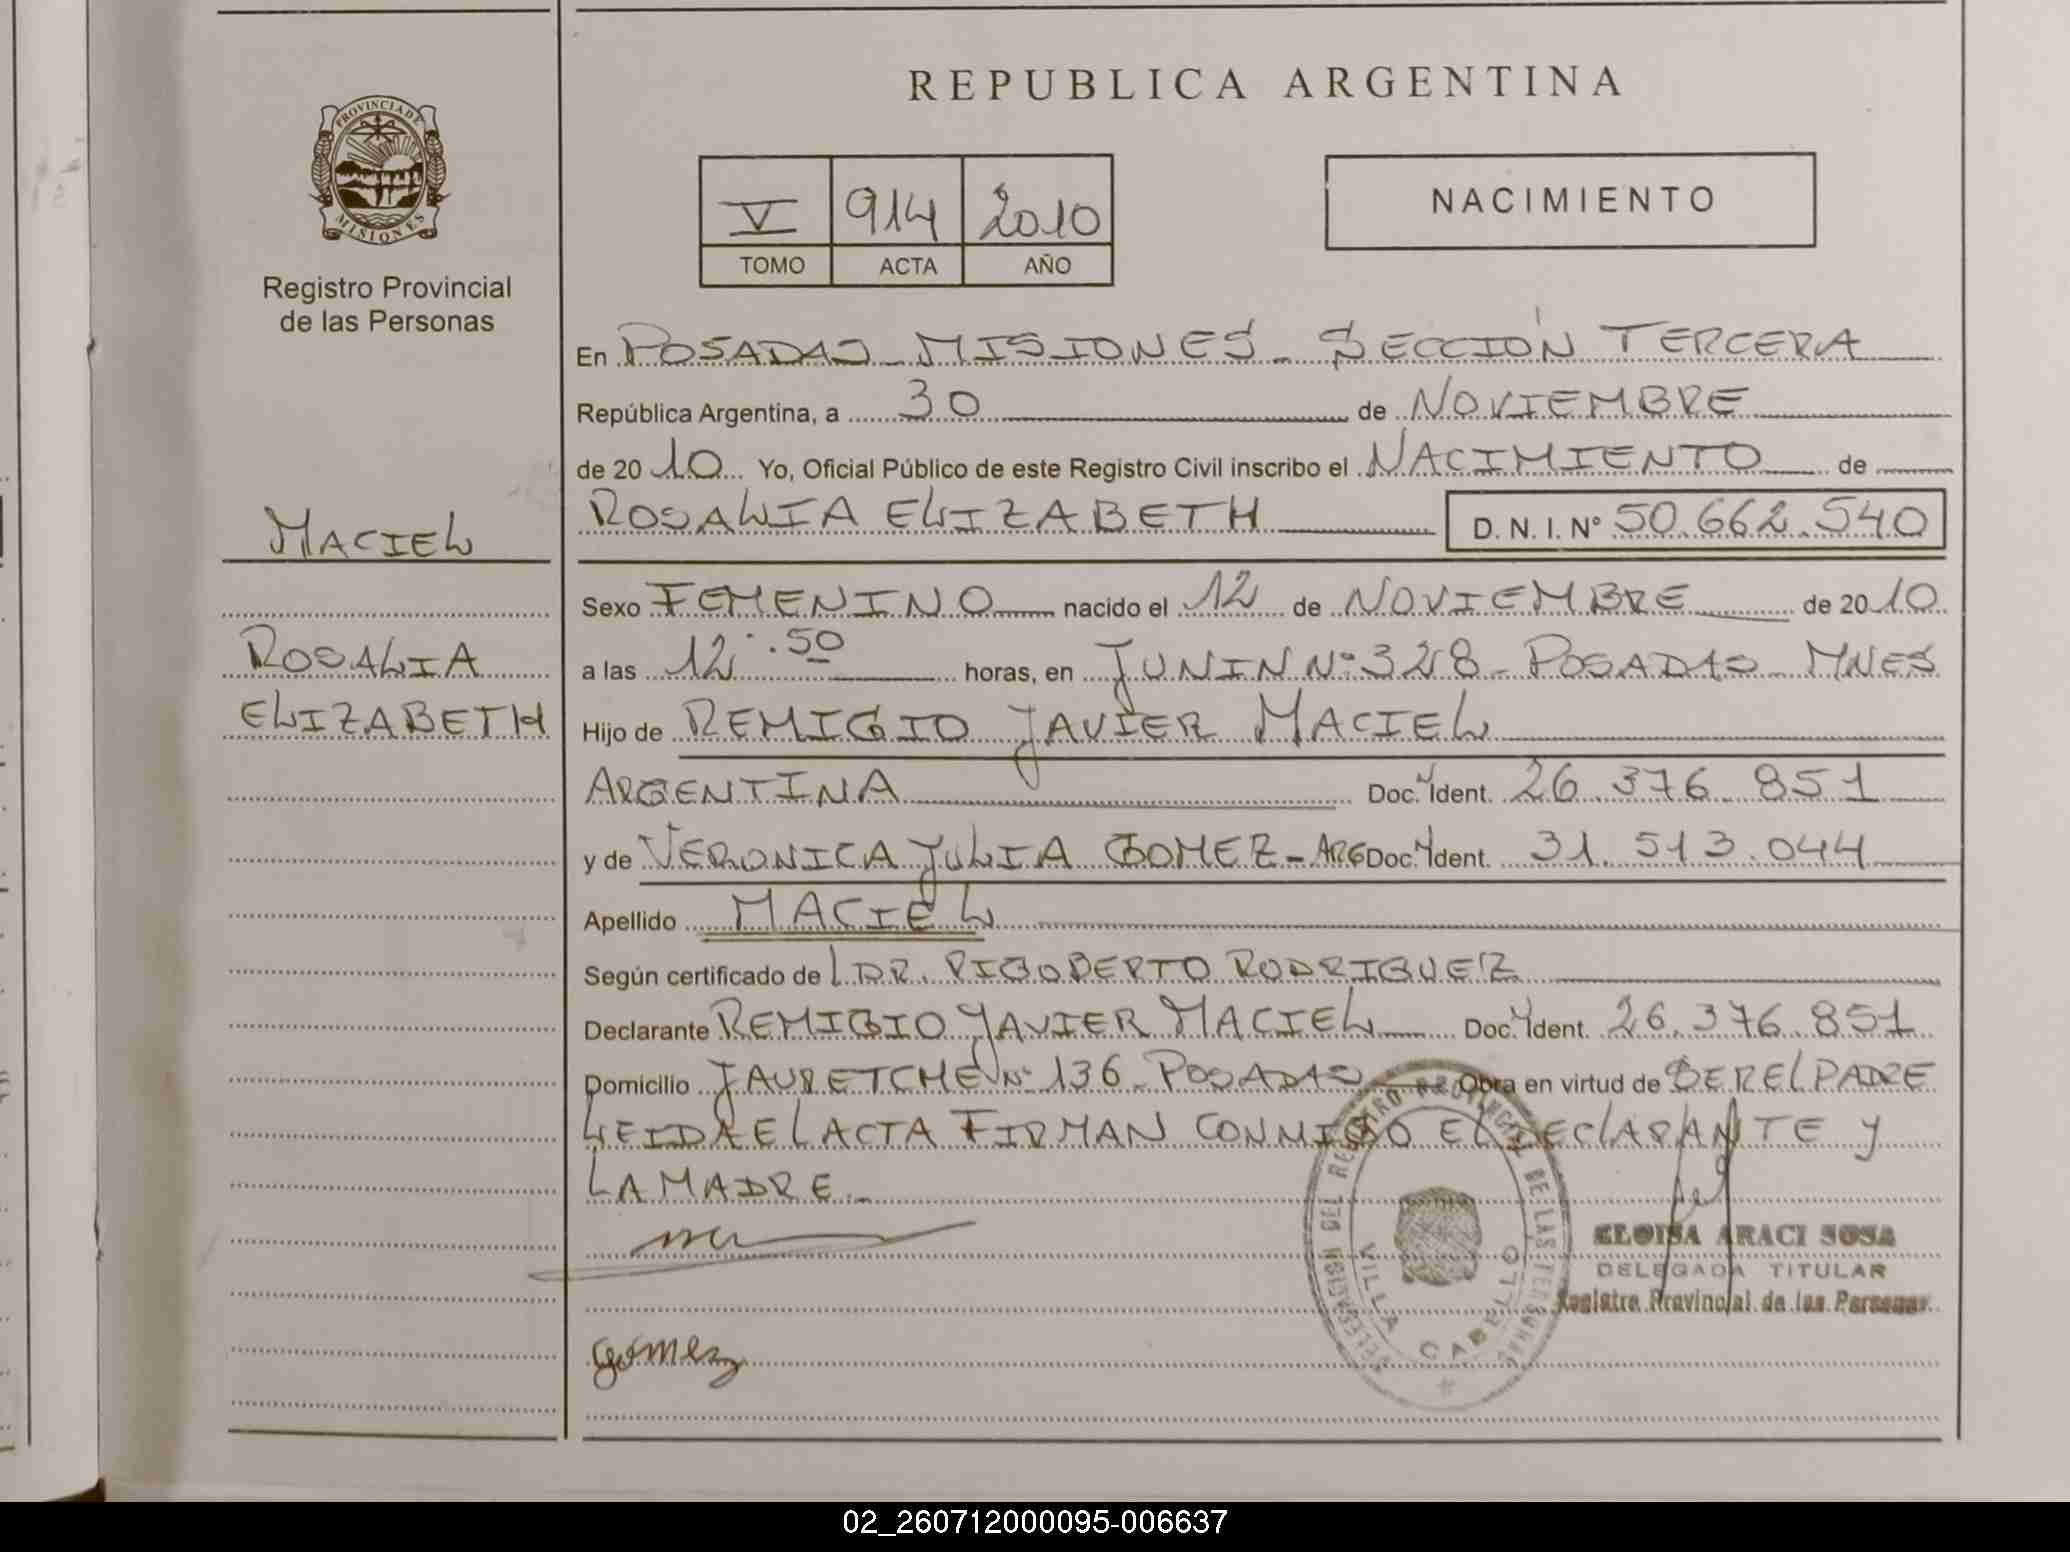 REPUBLICA ARGENTINA
PROVINCIA DE
MISIONES
Registro Provincial
de las Personas
V 914 2010
TOMO ACTA AÑO
NACIMIENTO
En POSADAS - MISIONES - SECCIÓN TERCERA
República Argentina, a 30 de NOVIEMBRE
de 20 10 Yo, Oficial Público de este Registro Civil inscribo el NACIMIENTO de
ROSALIA ELIZABETH D. N. I. Nº 50.662.540
MACIEL
Sexo FEMENINO nacido el 12 de NOVIEMBRE de 20 10
ROSALIA
a las 12:50 horas, en JUNIN Nº 328 - POSADAS - MNES
ELIZABETH
Hijo de REMIGIO JAVIER MACIEL
ARGENTINA Doc. y Ident. 26.376.851
y de VERONICA JULIA GOMEZ - ARG Doc. y Ident. 31.513.044
Apellido MACIEL
Según certificado de L DR. RIGOBERTO RODRIGUEZ
Declarante REMIGIO JAVIER MACIEL Doc. y Ident. 26.376.851
Domicilio JAURETCHE Nº 136 - POSADAS Obra en virtud de SER EL PADRE
LEIDA EL ACTA FIRMAN CONMIGO EL DECLARANTE Y
LA MADRE -
DELEGACION DEL REGISTRO PROVINCIAL DE LAS PERSONAS
VILLA CABELLO
ELOISA ARACI SOSA
DELEGADA TITULAR
Registro Provincial de las Personas
gomez
02_260712000095-006637